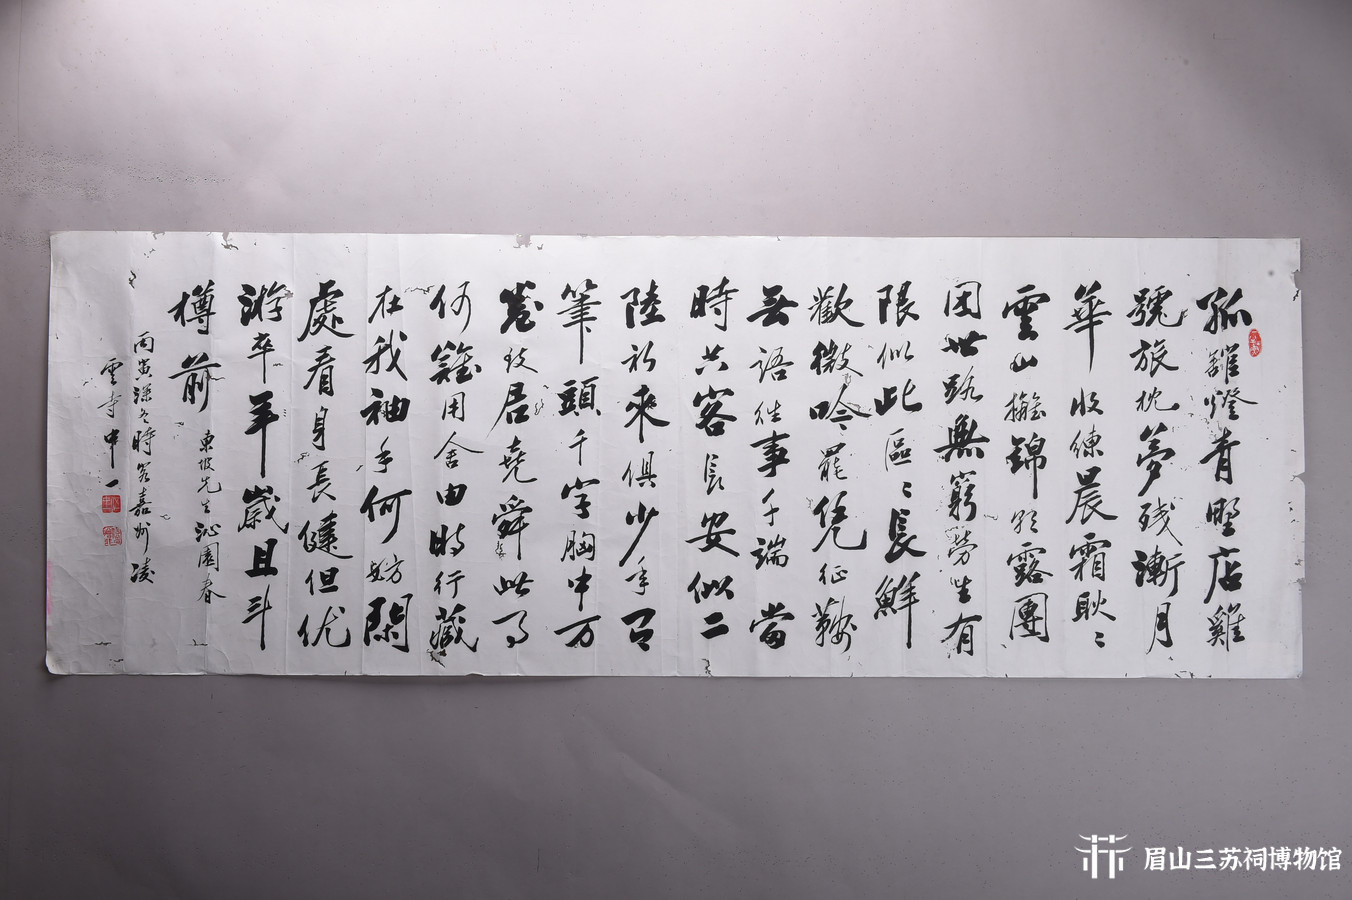 孤館燈青野店雞
號旅枕夢殘漸月
華收練晨霜耿〻
雲山摛錦朝露團
团世路無窮勞生有
限似此區〻長鮮
歡微吟罷凭征鞍
無語往事千端當
時共客長安似二
陸初來俱少年有
筆頭千字胸中万
卷致君堯舜此事
何難用舍由時行藏
在我袖手何妨閑
處看身長健但优
游卒年歲且斗
樽前
東坡先生沁園春
丙寅深冬時客嘉州凌
雲寺中一
眉山三苏祠博物馆